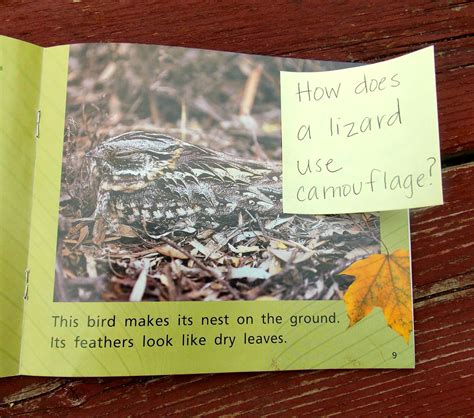 How does
a lizard
use
camouflage?
This bird makes its nest on the ground.
Its feathers look like dry leaves.
9